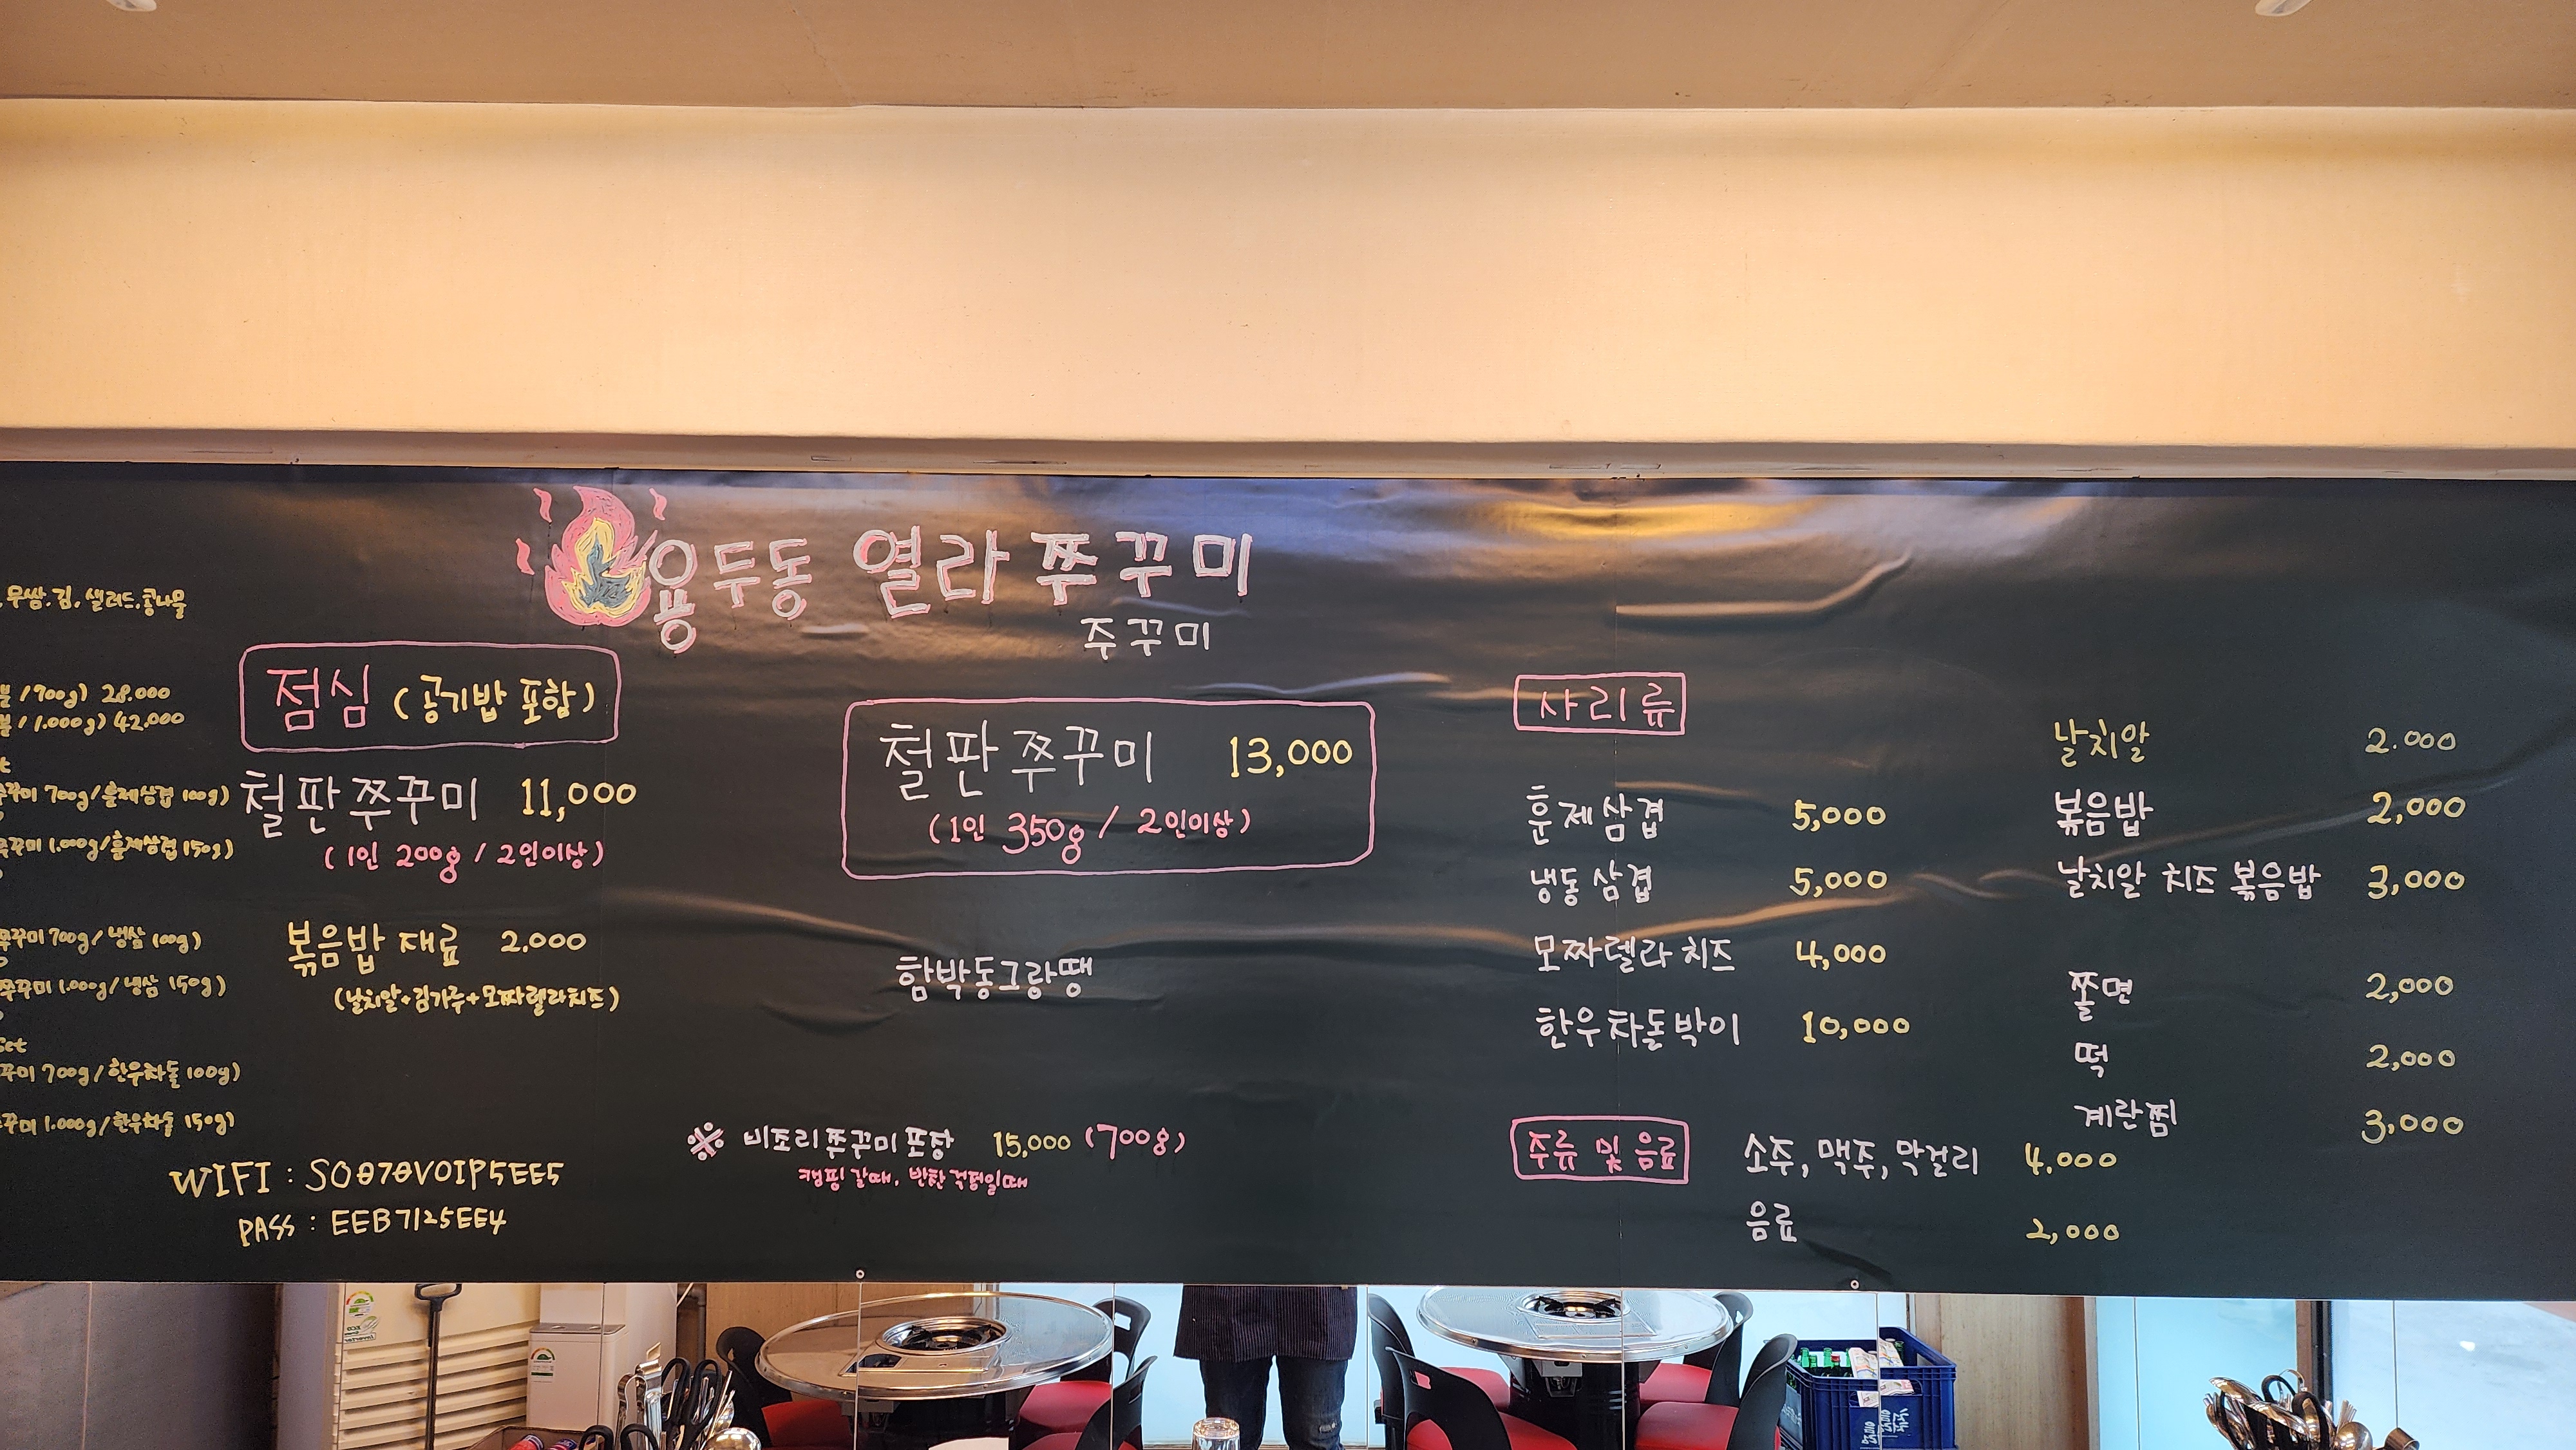 용두동 열라 쭈꾸미
주꾸미
무쌈.김.샐러드.콩나물
/700g) 28.000
/1.000g) 42.000
꾸미 700g/훈제삼겹 100g)
꾸미 1.000g/훈제삼겹 150g)
쭈꾸미 700g/냉삼 100g)
쭈꾸미 1.000g/냉삼 150g)
set
꾸미 700g/한우차돌 100g)
꾸미 1.000g/한우차돌 150g)
점심 (공기밥 포함)
철판쭈꾸미 11,000
(1인 200g / 2인이상)
볶음밥 재료 2.000
(날치알+김가루+모짜렐라치즈)
WIFI : SO070VOIP5EE5
PASS : EEB7125EE4
철판쭈꾸미 13,000
(1인 350g / 2인이상)
함박동그랑땡
※ 비조리쭈꾸미포장 15,000 (700g)
캠핑갈때, 반찬걱정일때
사리류
훈제삼겹 5,000
냉동삼겹 5,000
모짜렐라치즈 4,000
한우차돌박이 10,000
날치알 2.000
볶음밥 2,000
날치알 치즈 볶음밥 3,000
쫄면 2,000
떡 2,000
계란찜 3,000
주류 및 음료
소주, 맥주, 막걸리 4.000
음료 2,000